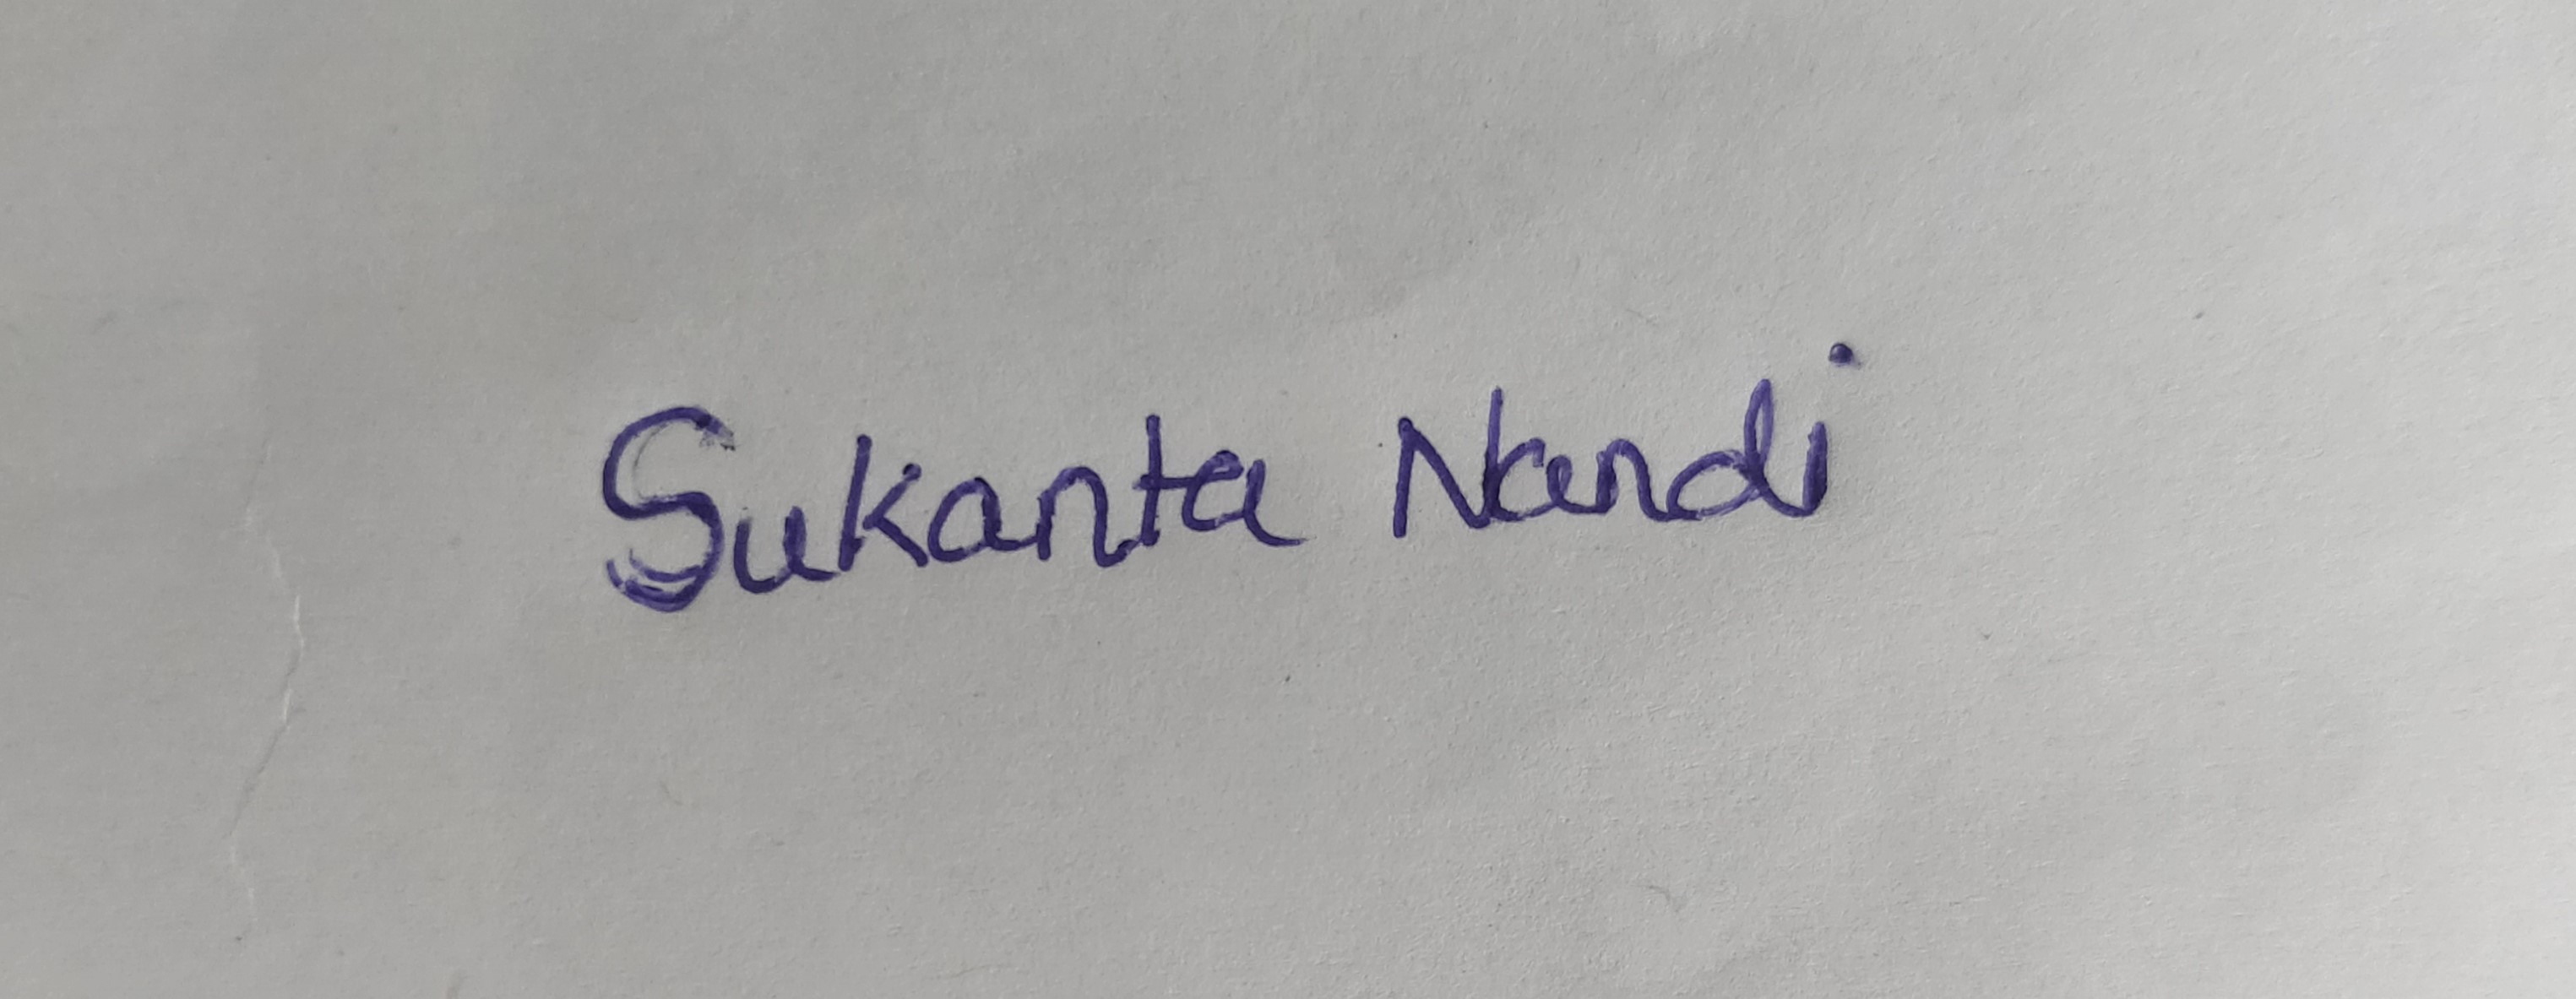 Sukanta Nandi